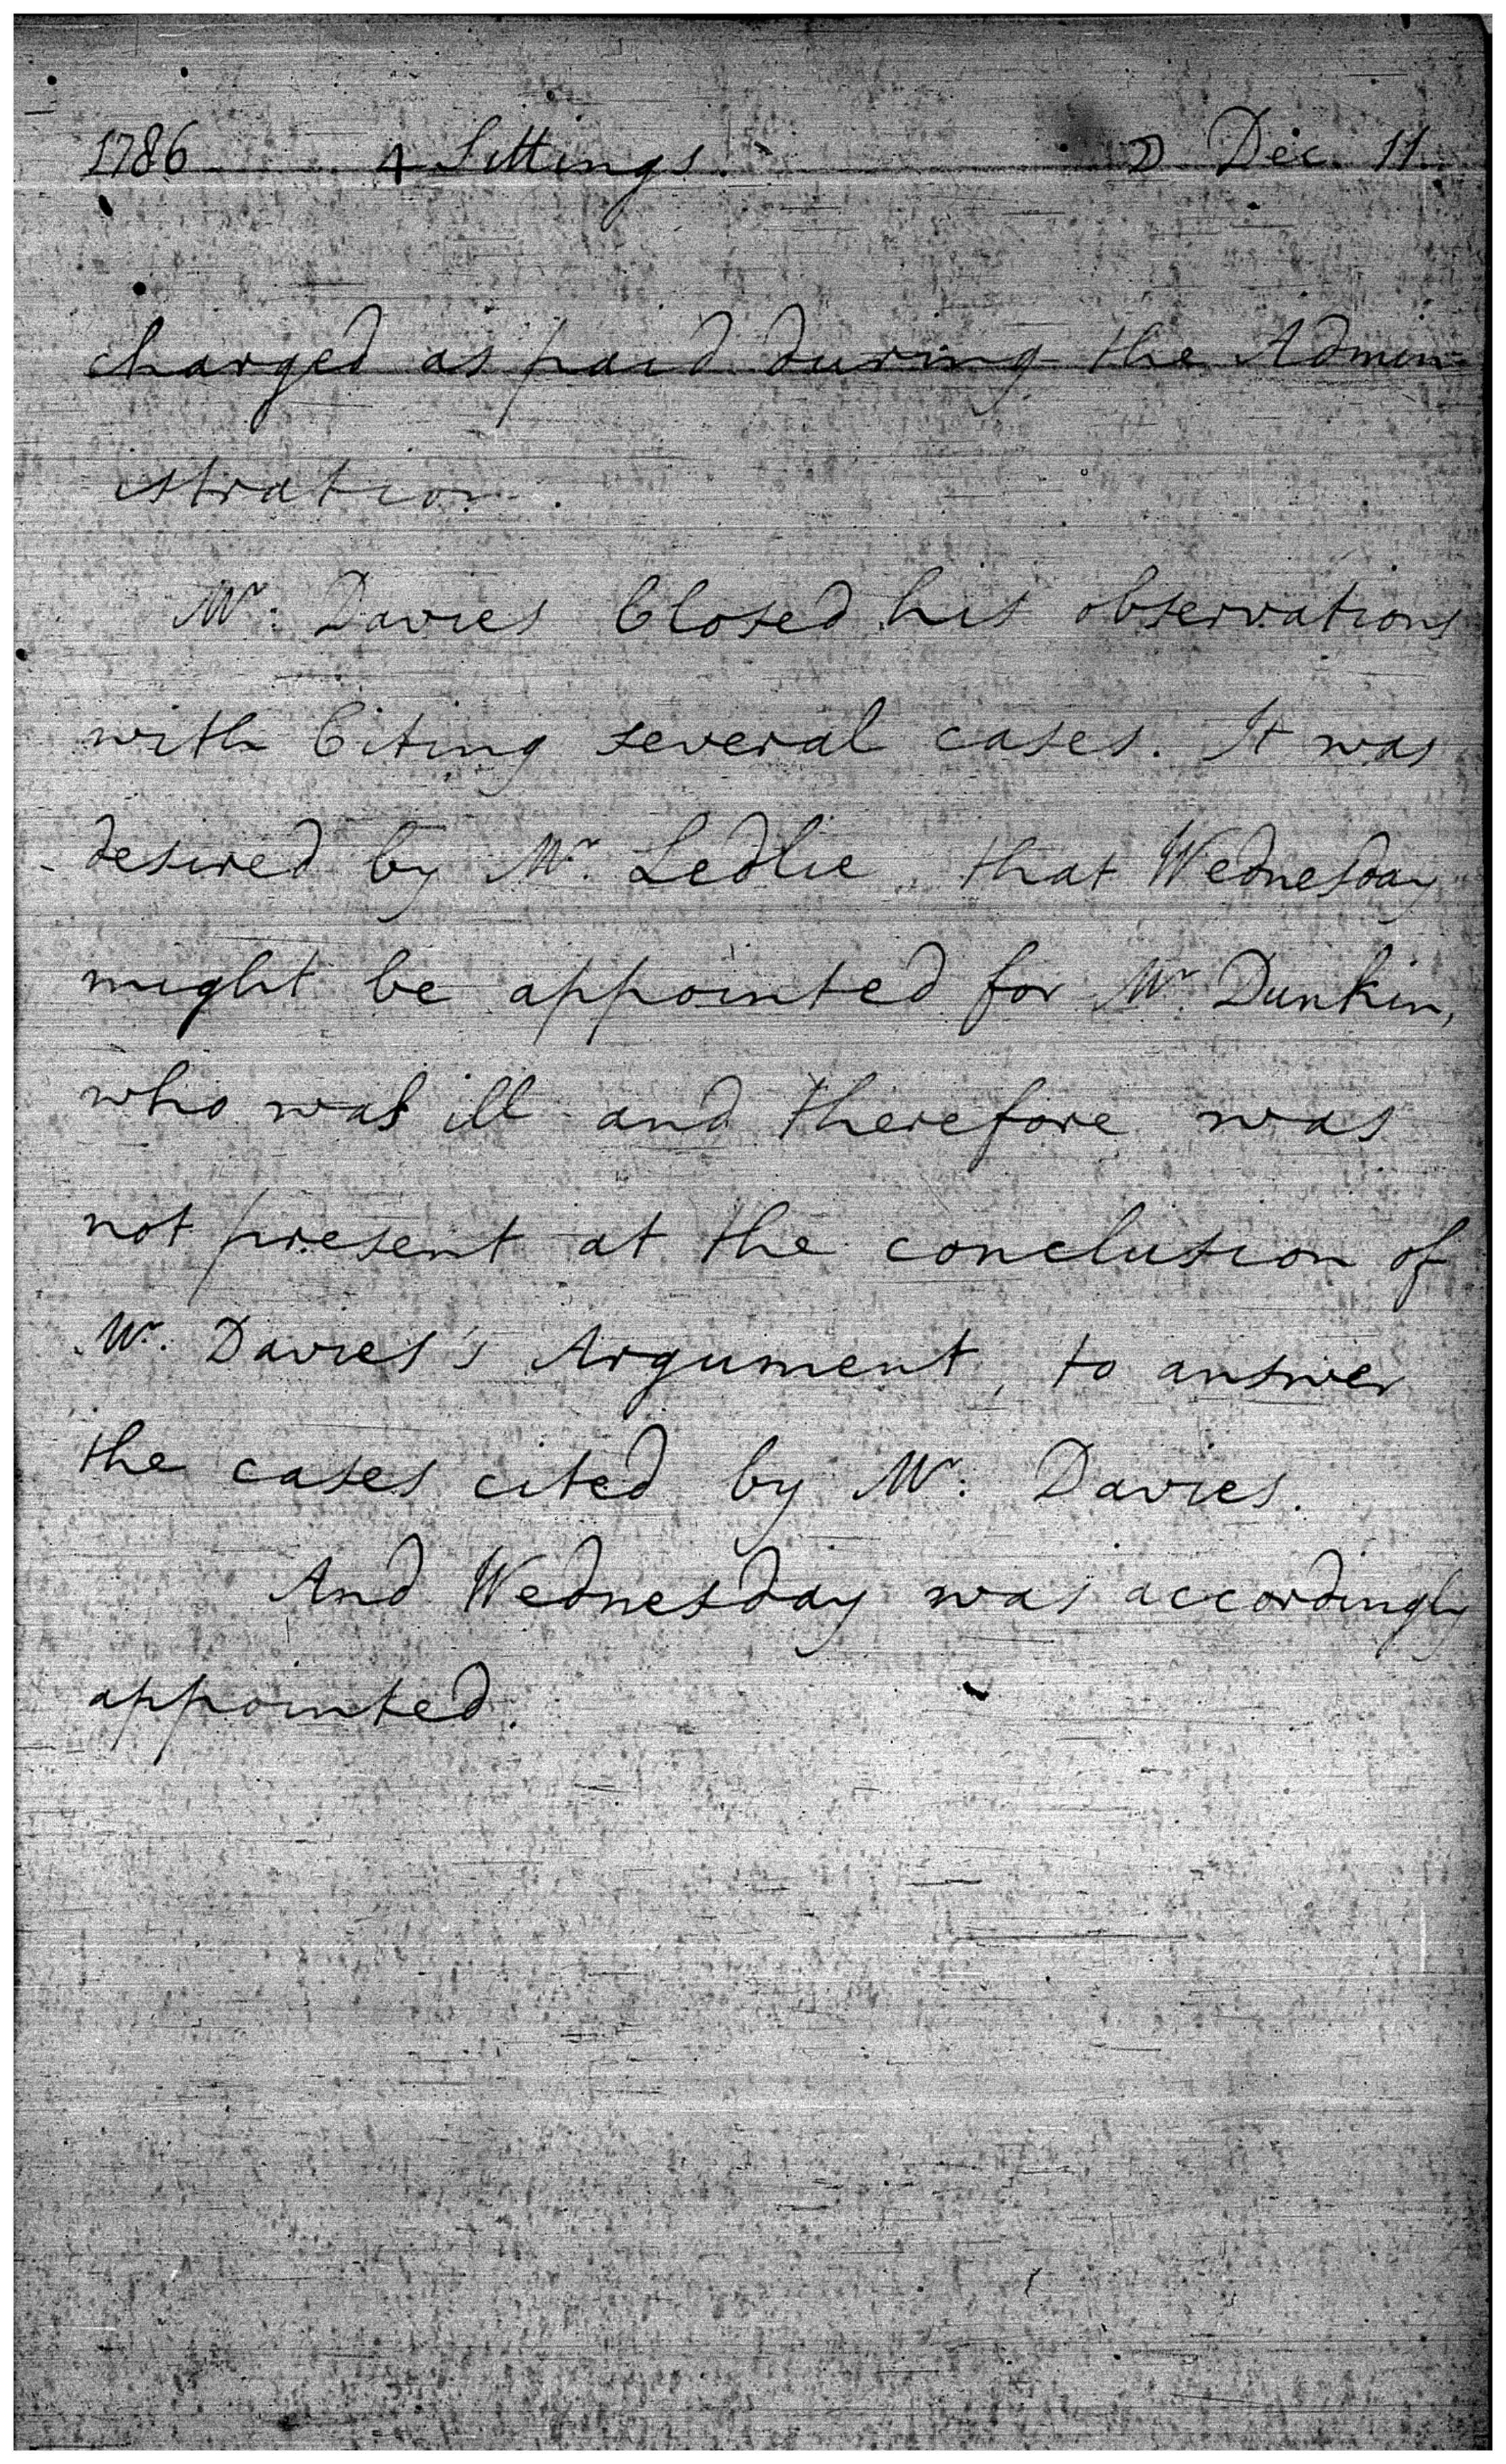 1786 4 Sittings. ☽ Dec. 11
charged as paid during the Admin-
istration.
Mr: Davies Closed his observations
with Citing several cases. It was
desired by Mr. Ledlie, that Wednesday
might be appointed for Mr. Dunkin,
who was ill and therefore was
not present at the conclusion of
Mr. Davies's Argument, to answer
the cases cited by Mr: Davies.
And Wednesday was accordingly
appointed.